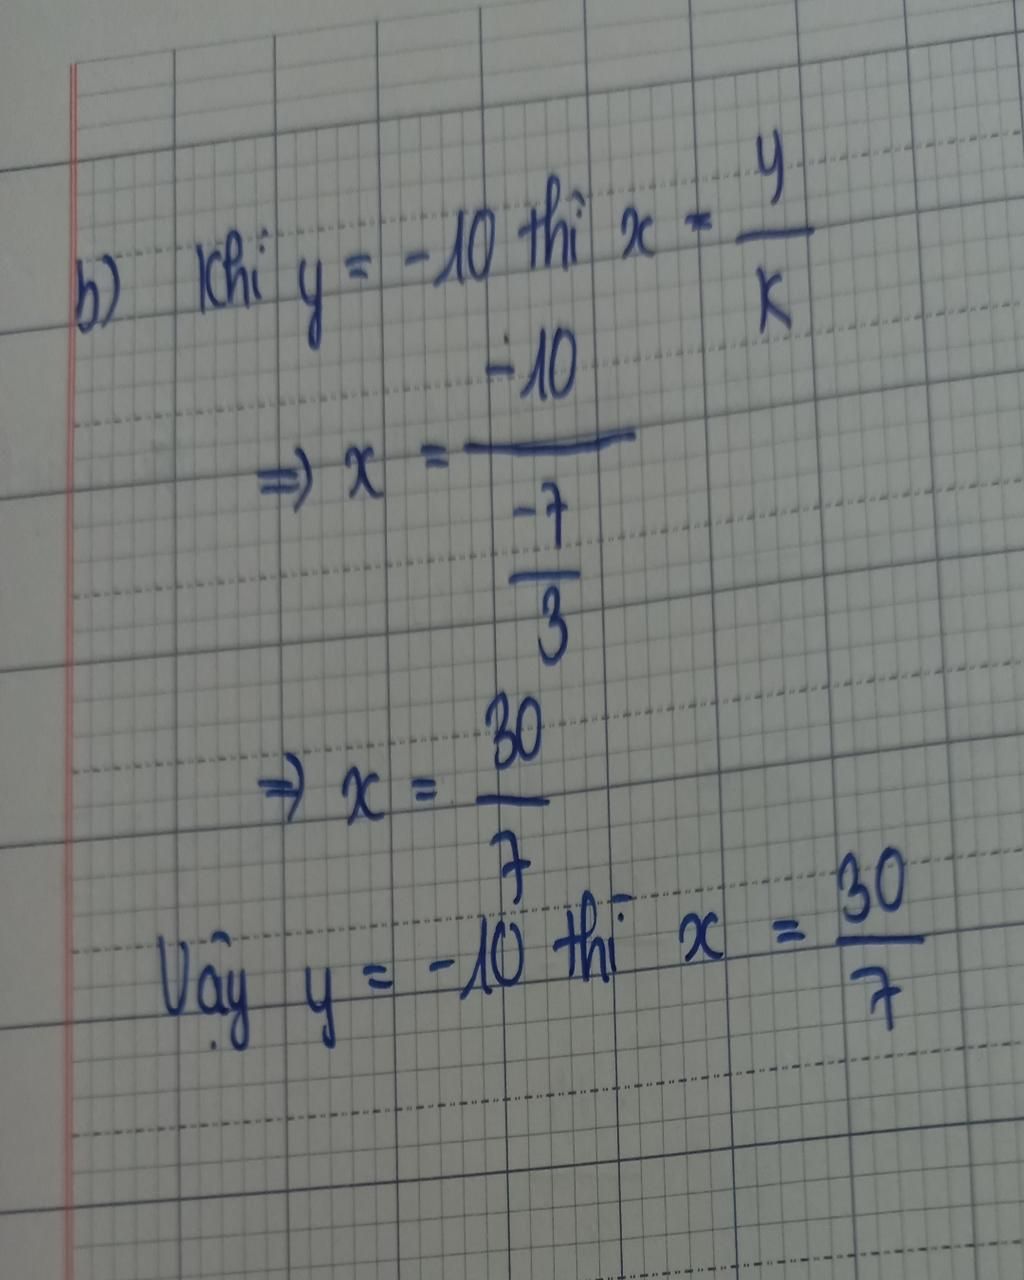 b) Khi y = -10 thì x = y/K
=> x = -10/(-7/3)
=> x = 30/7
Vậy y = -10 thì x = 30/7